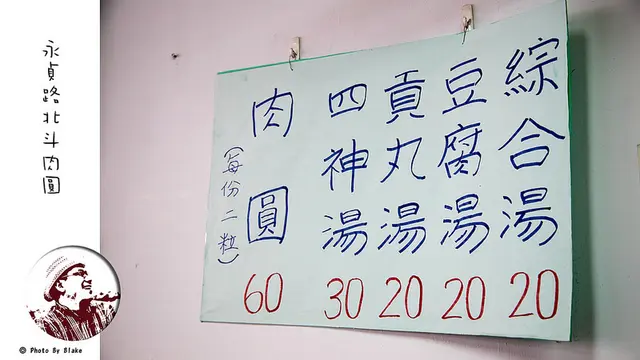 永貞路北斗肉圓
綜合湯 20
豆腐湯 20
貢丸湯 20
四神湯 30
肉圓 60
(每份二粒)
© Photo By Blake